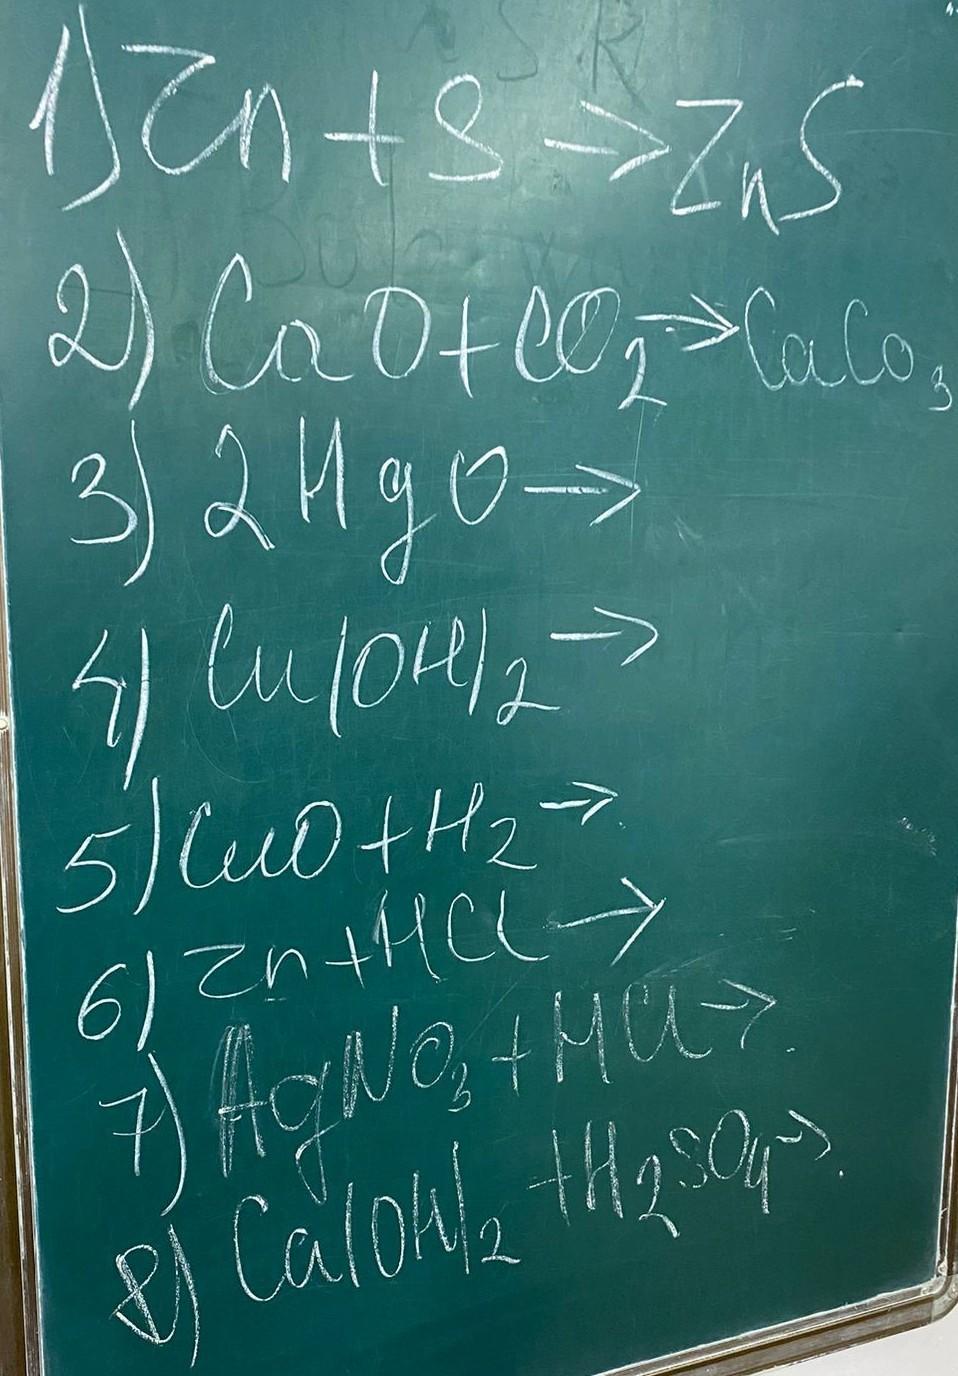 1) Zn + S → ZnS
2) CaO + CO₂ → CaCo₃
3) 2HgO →
4) Cu(OH)₂ →
5) CuO + H₂ →
6) Zn + HCl →
7) AgNO₃ + HCl →
8) Ca(OH)₂ + H₂SO₄ →